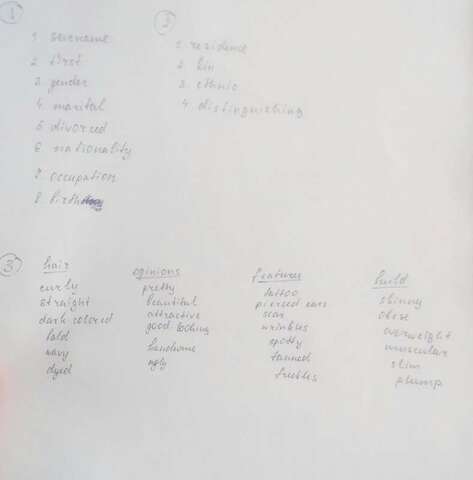 1
1. surname
2. first
3. gender
4. marital
5. divorced
6. nationality
7. occupation
8. birth
2
1. rezidence
2. kin
3. ethnic
4. distinguishing
3
hair
curly
straight
dark colored
bald
wavy
dyed
opinions
pretty
beautiful
attractive
good-looking
handsome
ugly
features
tattoo
pierced ears
scar
wrinkles
spotty
tanned
build
skinny
obese
overweight
muscular
slim
plump